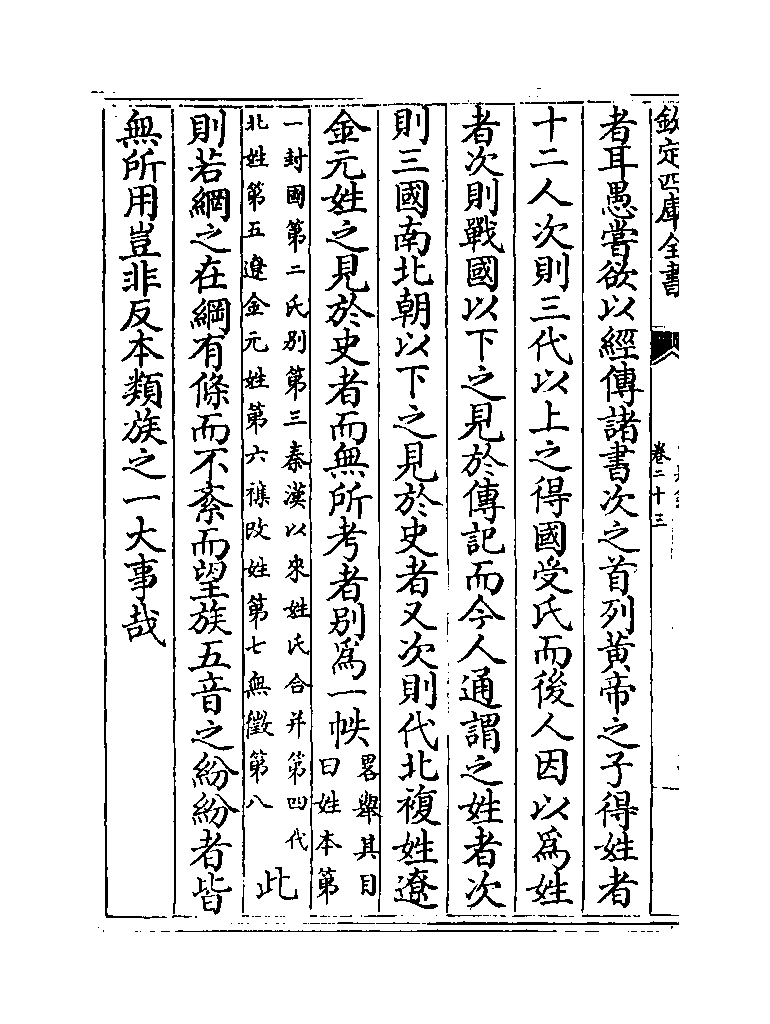 欽定四庫全書
卷二十三
者耳愚嘗欲以經傳諸書次之首列黄帝之子得姓者
十二人次則三代以上之得國受氏而後人因以為姓
者次則戰國以下之見於傳記而今人通謂之姓者次
則三國南北朝以下之見於史者又次則代北複姓遼
金元姓之見於史者而無所考者别為一帙畧舉其目曰姓本第
一封國第二氏别第三秦漢以來姓氏合并第四代北姓第五遼金元姓第六襍改姓第七無徵第八此
則若網之在綱有條而不紊而望族五音之紛紛者皆
無所用豈非反本類族之一大事哉